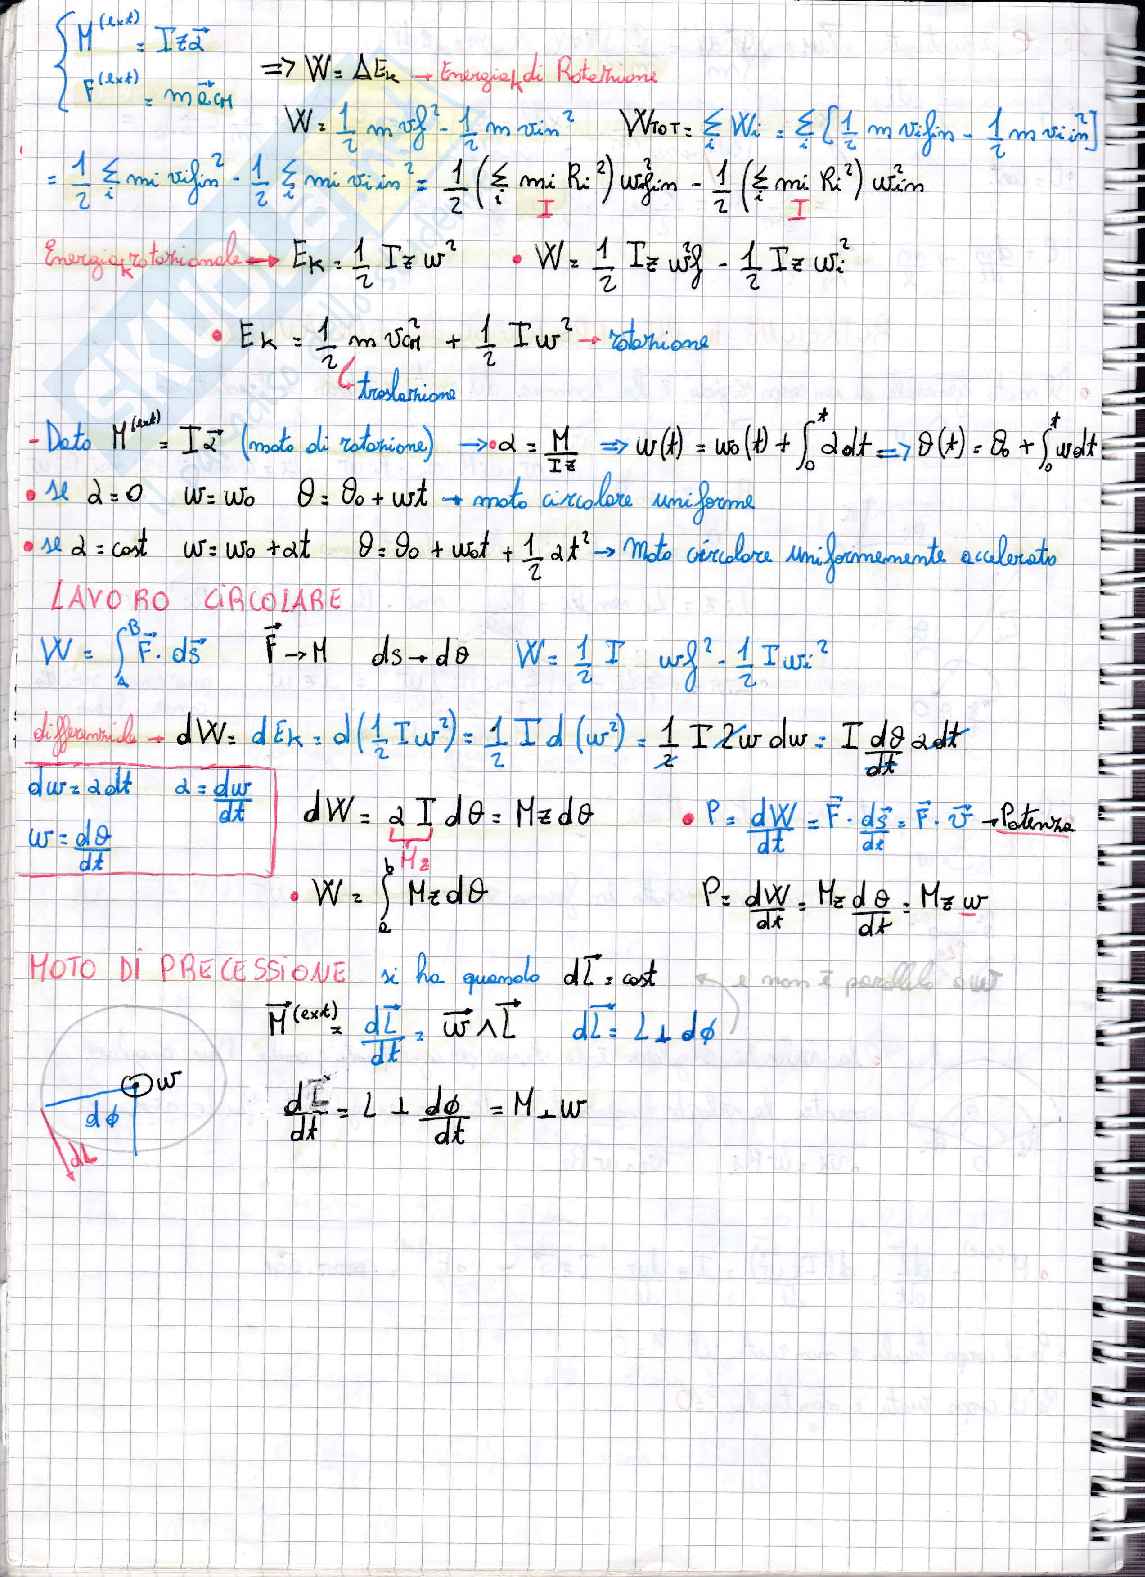 M^(ext) = Iz α⃗
F^(ext) = m a⃗CM
=> W = ΔEk → Energia k di Rotazione
W = 1/2 m vf² - 1/2 m vin²   WTOT = Σi Wi = Σi [1/2 m vi fin - 1/2 m vi in²]
= 1/2 Σi mi vi fin² - 1/2 Σi mi vi in² = 1/2 (Σi mi Ri²) ω²fin - 1/2 (Σi mi Ri²) ω²in
I   I
Energia k rotazionale → Ek = 1/2 Iz ω²   • W = 1/2 Iz ω²f - 1/2 Iz ωi²
• Ek = 1/2 m vCM² + 1/2 I ω² → rotazione
traslazione
- Dato M^(ext) = I α⃗ (moto di rotazione) → • α = M/Iz => ω(t) = ω0(t) + ∫0^t α dt => θ(t) = θ0 + ∫0^t ω dt
• se α = 0   ω = ω0   θ = θ0 + ωt → moto circolare uniforme
• se α = cost   ω = ω0 + αt   θ = θ0 + ω0t + 1/2 αt² → Moto circolare uniformemente accelerato
LAVORO CIRCOLARE
W = ∫A^B F⃗ · ds⃗   F⃗ → M   ds → dθ   W = 1/2 I ωf² - 1/2 I ωi²
differenziale → dW = dEk = d(1/2 I ω²) = 1/2 I d(ω²) = 1/2 I 2ω dω = I dθ/dt α dt
dω = α dt   α = dω/dt
ω = dθ/dt
dW = α I dθ = Mz dθ   • P = dW/dt = F⃗ · ds⃗/dt = F⃗ · v⃗ → Potenza
Mz
• W = ∫a^b Mz dθ   P = dW/dt = Mz dθ/dt = Mz ω
MOTO DI PRECESSIONE si ha quando dL⃗ = cost ← e non è parallelo
M⃗^(ext) = dL⃗/dt = ω⃗ ∧ L⃗   dL⃗ = L⊥ dϕ
ω
dϕ
dL
dL⃗/dt = L⊥ dϕ/dt = M⊥ω